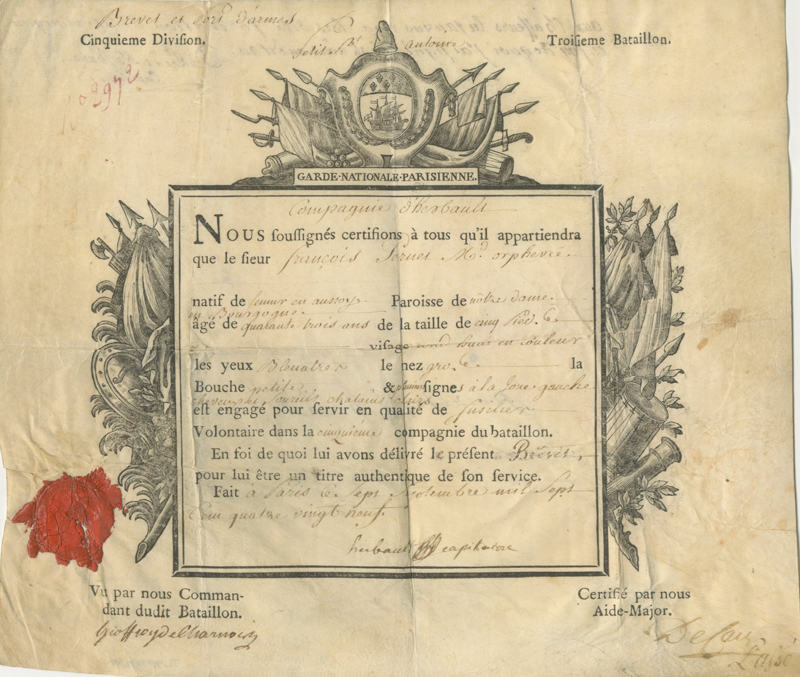 Brevet et Port d'armes
Cinquieme Division.
Petit St antoine
Troisieme Bataillon.
GARDE·NATIONALE·PARISIENNE.
Compagnie d'herbault
NOUS soussignés certifions à tous qu'il appartiendra
que le sieur françois Md orphevre
natif de semur en auxsoy Paroisse de nôtre dame.
en Bourgogne.
âgé de quarante trois ans de la taille de cinq pieds
visage rond haut en couleur
les yeux Bleuatre le nez gros la
Bouche petite & plusieurs signes à la joue gauche
cheveux et sourcils chatains
est engagé pour servir en qualité de fusilier
Volontaire dans la cinquieme compagnie du bataillon.
En foi de quoi lui avons délivré le présent Brévet,
pour lui être un titre authentique de son service.
Fait à Paris le Sept Septembre mil Sept
Cent quatre vingt neuf.
herbault capitaine
Vu par nous Comman-
dant dudit Bataillon.
Certifié par nous
Aide-Major.
Geoffroy de Charnois